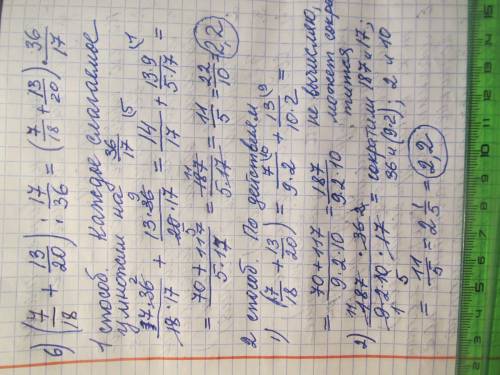 6) (7/18 + 13/20) : 17/36 = (7/18 + 13/20) · 36/17
1 способ. Каждое слагаемое
умножим на 36/17
7·36/18·17 + 13·36/20·17 = 14/17 + 13·9/5·17 =
= 70+117/5·17 = 187/5·17 = 11/5 = 22/10 = 2,2.
2 способ. По действием
1) (7/18 + 13/20) = 7/9·2 + 13/10·2 =
= 70+117/9·2·10 = 187/9·2·10
не вычисляю,
может сокра-
тится
2) 187·36/9·2·10·17 = сократили 187 и 17;
36 и (9·2); 2 и 10
= 11/5 = 2 1/5 = 2,2